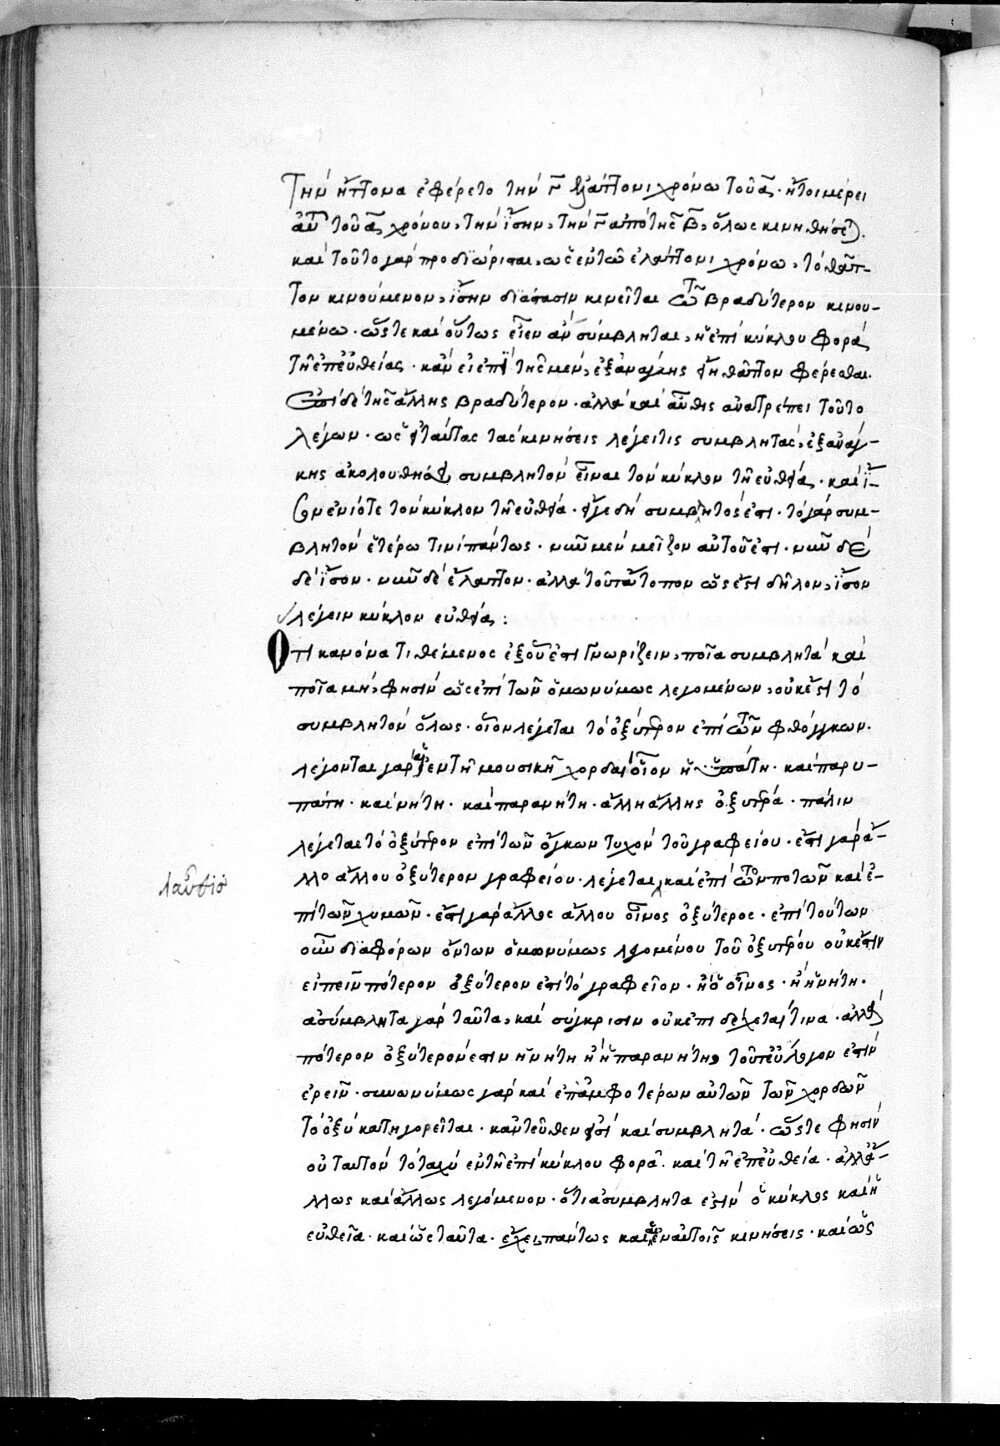 τὴν ἥττονα ἐφέρετο τὴν Γ ἐλάττονι χρόνω τοῦ Α· ἤτοι μέρει
τοῦ Α χρόνου, τὴν ἴσην τὴν Γ ἀπὸ τῆς Β, ὅλως κινηθήσε
καὶ τοῦτο γὰρ προδιώρισται, ὡς ἐν τῶ ἐλάττονι χρόνω, τὸ θᾶτ-
τον κινούμενον, ἴσην διάστασιν κινεῖται τῶ βραδύτερον κινου-
μένω· ὥστε καὶ οὕτως εἶεν ἂν σύμβληται, ἡ ἐπὶ κύκλου φορά,
τῆ ἐπ' εὐθείας· κἂν εἰ ἐπὶ τῆς μὲν, ἐξ ἀνάγκης θᾶττον φέρεσθαι.
ἐπὶ δὲ τῆς ἄλλης βραδύτερον· ἀλλὰ καὶ αὖθις ἀνατρέπει τοῦτο
λέγων· ὡς ταύτας τὰς κινήσεις λέγει τις συμβλητάς, ἐξ ἀνάγ-
κης ἀκολουθήσει συμβλητὸν εἶναι τὸν κύκλον τῆ εὐθεία· καὶ ἴ-
σον ἐνίοτε τὸν κύκλον τῆ εὐθεία· εἴγε δὴ συμβλητός ἐστι· τὸ γὰρ συμ-
βλητὸν ἑτέρω τινὶ πάντως· μὲν μεῖζον αὐτοῦ ἐστι· δὲ
δὲ ἴσον· δὲ ἔλαττον· ἀλλὰ τοῦτ' ἄτοπον ὡς ἔστι δῆλον, ἴσον
λέγειν κύκλον εὐθεία:
Ὅτι κανόνα τιθέμενος ἐξ οὗ ἐστι γνωρίζειν, ποῖα συμβλητὰ καὶ
ποῖα μή, φησὶν ὡς ἐπὶ τῶν ὁμωνύμως λεγομένων, οὐκ ἔστι τὸ
συμβλητὸν ὅλως· οἷον λέγεται τὸ ὀξύτερον ἐπὶ τῶν φθόγγων.
λέγονται γὰρ αἱ ἐν τῆ μουσικῆ χορδαὶ οἷον ἡ ὑπάτη· καὶ παρυ-
πάτη· καὶ νήτη· καὶ παρανήτη· ἄλλη ἄλλης ὀξυτέρα· πάλιν
λέγεται τὸ ὀξύτερον ἐπὶ τῶν ὄγκων τυχὸν τοῦ γραφείου· ἔστι γὰρ ἄ-
λλο ἄλλου ὀξύτερον γραφείου· λέγεται, καὶ ἐπὶ τῶν ποτῶν καὶ ἐ-
πὶ τῶν χυμῶν· ἔστι γὰρ ἄλλος ἄλλου οἶνος ὀξύτερος· ἐπὶ τούτων
οὖν διαφόρων ὄντων ὁμωνύμως λεγομένου τοῦ ὀξυτέρου οὐκ ἔστιν
εἰπεῖν πότερον ὀξύτερον ἐστὶ τὸ γραφεῖον· ἢ ὁ οἶνος· ἢ ἡ νήτη·
ἀσύμβλητα γὰρ ταῦτα, καὶ σύγκρισιν οὐκ ἐπιδέχεταί τινα· ἀλλὰ
πότερον ὀξύτερόν ἐστιν ἡ νήτη ἢ ἡ παρανήτη, τοῦτ' εὔλογον ἐστὶν
ἐρεῖν· συνωνύμως γὰρ καὶ ἐπ' ἀμφοτέρων αὐτῶν τῶν χορδῶν
τὸ ὀξὺ κατηγορεῖται· κἀντεῦθεν εἰσὶ καὶ συμβληταί· ὥστε φησὶν
οὐ ταυτὸν τὸ ταχὺ ἐν τῆ ἐπὶ κύκλου φορᾶ· καὶ τῆ ἐπ' εὐθεία· ἀλλ' ἄ-
λλως καὶ ἄλλως λεγόμενον· ὅτι ἀσύμβλητα ἐστὶν ὁ κύκλος καὶ ἡ
εὐθεῖα· καὶ ὡς ταῦτα· ἔχει, πάντως καὶ αἱ ἐν αὐτοῖς κινήσεις· καὶ ὡς